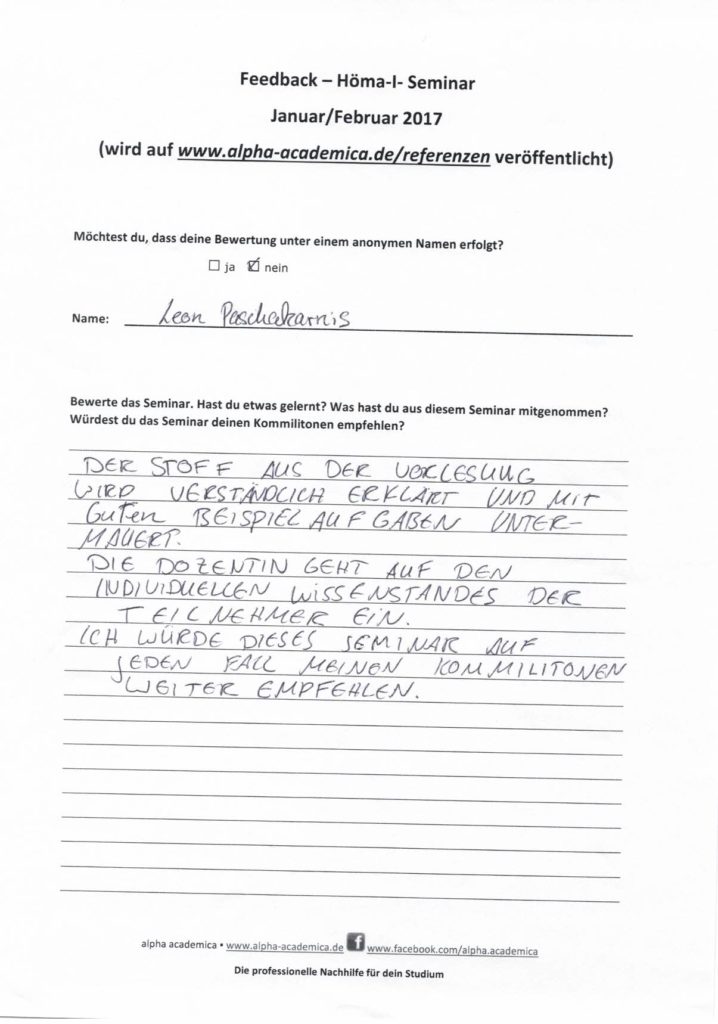 Feedback – Höma-I- Seminar
Januar/Februar 2017
(wird auf www.alpha-academica.de/referenzen veröffentlicht)
Möchtest du, dass deine Bewertung unter einem anonymen Namen erfolgt?
☐ ja ☑ nein
Name: Leon Paschakarnis
Bewerte das Seminar. Hast du etwas gelernt? Was hast du aus diesem Seminar mitgenommen?
Würdest du das Seminar deinen Kommilitonen empfehlen?
DER STOFF AUS DER VORLESUNG
WIRD VERSTÄNDLICH ERKLÄRT UND MIT
GUTEN BEISPIELAUFGABEN UNTER-
MAUERT.
DIE DOZENTIN GEHT AUF DEN
INDIVIDUELLEN WISSENSTANDES DER
TEILNEHMER EIN.
ICH WÜRDE DIESES SEMINAR AUF
JEDEN FALL MEINEN KOMMILITONEN
WEITER EMPFEHLEN.
alpha academica • www.alpha-academica.de f www.facebook.com/alpha.academica
Die professionelle Nachhilfe für dein Studium